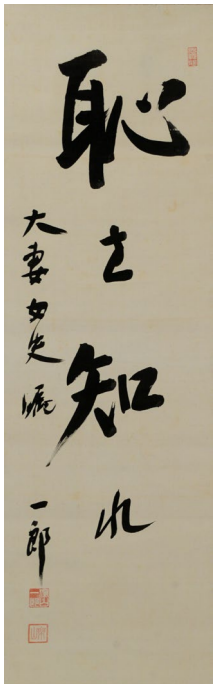 恥を知れ
大妻女史嘱
一郎